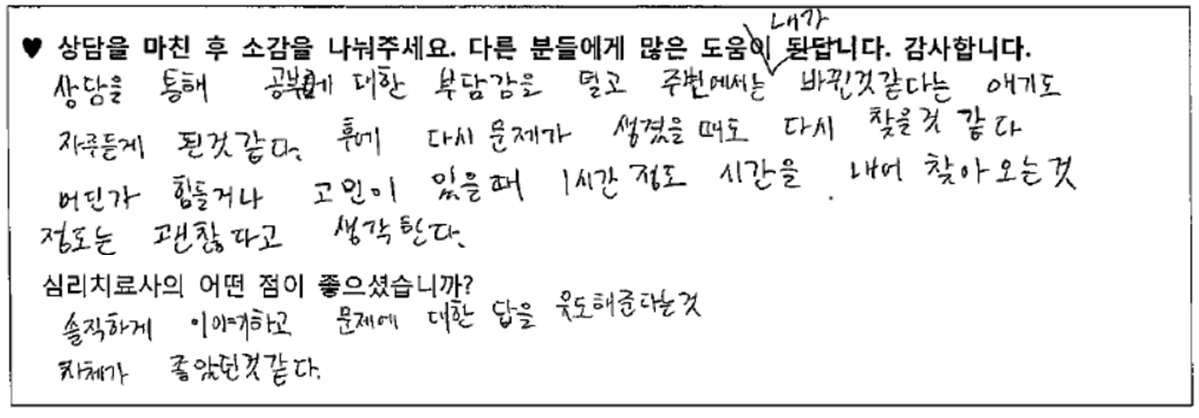 ♥ 상담을 마친 후 소감을 나눠주세요. 다른 분들에게 많은 도움이 된답니다. 감사합니다.
내가
상담을 통해 공부에 대한 부담감을 덜고 주변에서는 바뀐것같다는 얘기도
자주듣게 된것같다. 후에 다시 문제가 생겼을때도 다시 찾을것 같다
어딘가 힘들거나 고민이 있을때 1시간 정도 시간을 내어 찾아오는것
정도는 괜찮다고 생각한다.
심리치료사의 어떤 점이 좋으셨습니까?
솔직하게 이야기하고 문제에 대한 답을 유도해준다는것
자체가 좋았던것같다.